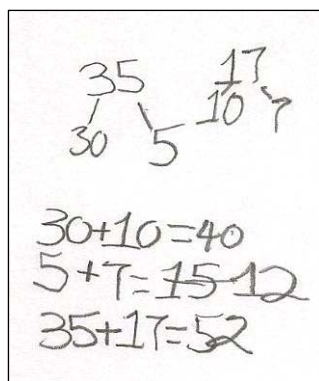 35 17
30 5 10 7
30+10=40
5+7=15 12
35+17=52